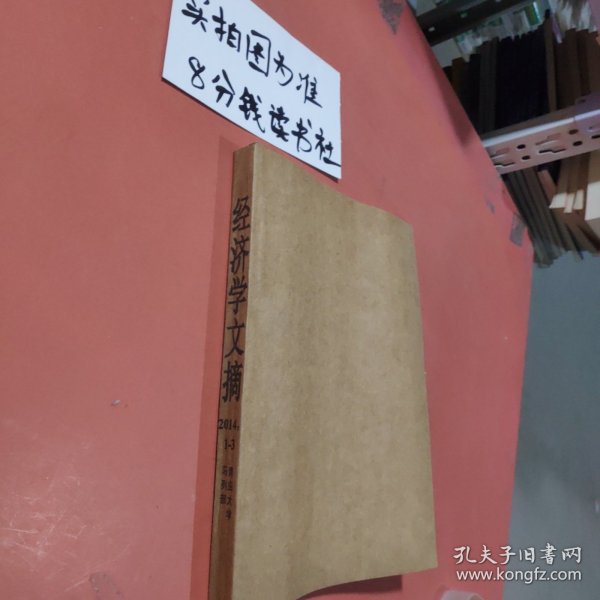 实拍图为准
8分钱读书社
经济学文摘
2014.
1-3
青岛大学
马列部
孔夫子旧书网
www.kongfz.com